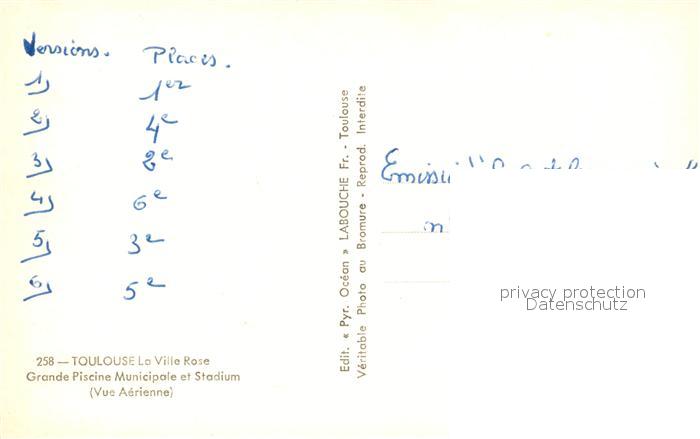 Versions. Places.
1) 1er
2) 4e
3) 2e
4) 6e
5) 3e
6) 5e
258 — TOULOUSE La Ville Rose
Grande Piscine Municipale et Stadium
(Vue Aérienne)
Edit. « Pyr. Océan » LABOUCHE Fr. - Toulouse
Véritable Photo au Bromure - Reprod. Interdite
privacy protection
Datenschutz